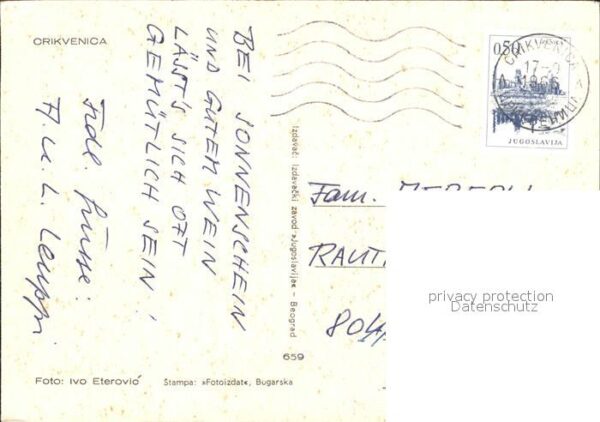 CRIKVENICA
BEI SONNENSCHEIN
UND GUTEM WEIN
LÄSST'S SICH OFT
GEMÜTLICH SEIN!
Frdl. Grüsse:
H. u. L. Leuppi
Foto: Ivo Eterović
Štampa: »Fotoizdat«, Bugarska
659
Izdavač: Izdavački zavod »Jugoslavija« — Beograd
0,50
CRIKVENICA
17-9
1966
JUGOSLAVIJA
Fam.
privacy protection
Datenschutz